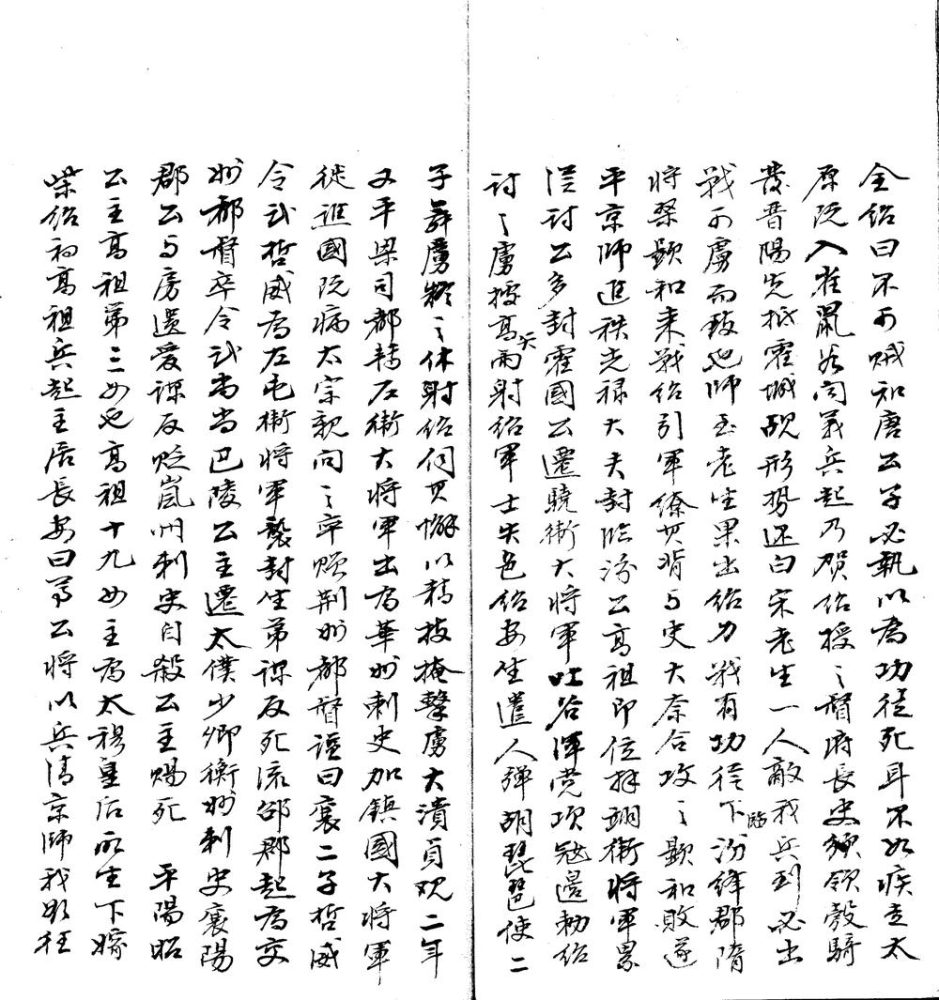 全紹曰不可賊知唐公子必執以為功徒死耳不如疾走太
原既入雀鼠谷聞義兵起乃賀紹授之督府長史領領馬騎
發晉陽先抵霍城覘形勢還白宋老生一人敵我兵到必出
戰可虜而致也師至老生果出紹力戰有功從下臨汾絳郡隋
將桑顯和來戰紹引軍繚其背与史大奈合攻之顯和敗遂
平京師進秩光祿大夫封臨汾公高祖即位拜翊衛將軍累
從討公多封霍國公遷驍衛大將軍吐谷渾党項寇邊勅紹
討之虜據高矢雨射紹軍士失色紹安坐遣人彈胡琵琶使二
子舞虜疑之休射紹伺其懈以精技掩擊虜大潰貞观二年
又平梁司都轉左衛大將軍出為華州刺史加鎮國大將軍
徙進國既病太宗親问之卒贈荆州都督謚曰襄二子哲威
令武哲威為左屯衛將軍襲封坐弟謀反死流邵郡起為交
州都督卒令武尚尚巴陵公主遷太僕少卿衡州刺史襄陽
郡公与房遺愛謀反貶嵐州刺史自殺公主賜死　平陽昭
公主高祖第三女也高祖十九女主為太穆皇后所生下嫁
柴紹初高祖兵起主居長安曰尊公將以兵清京師我欲往